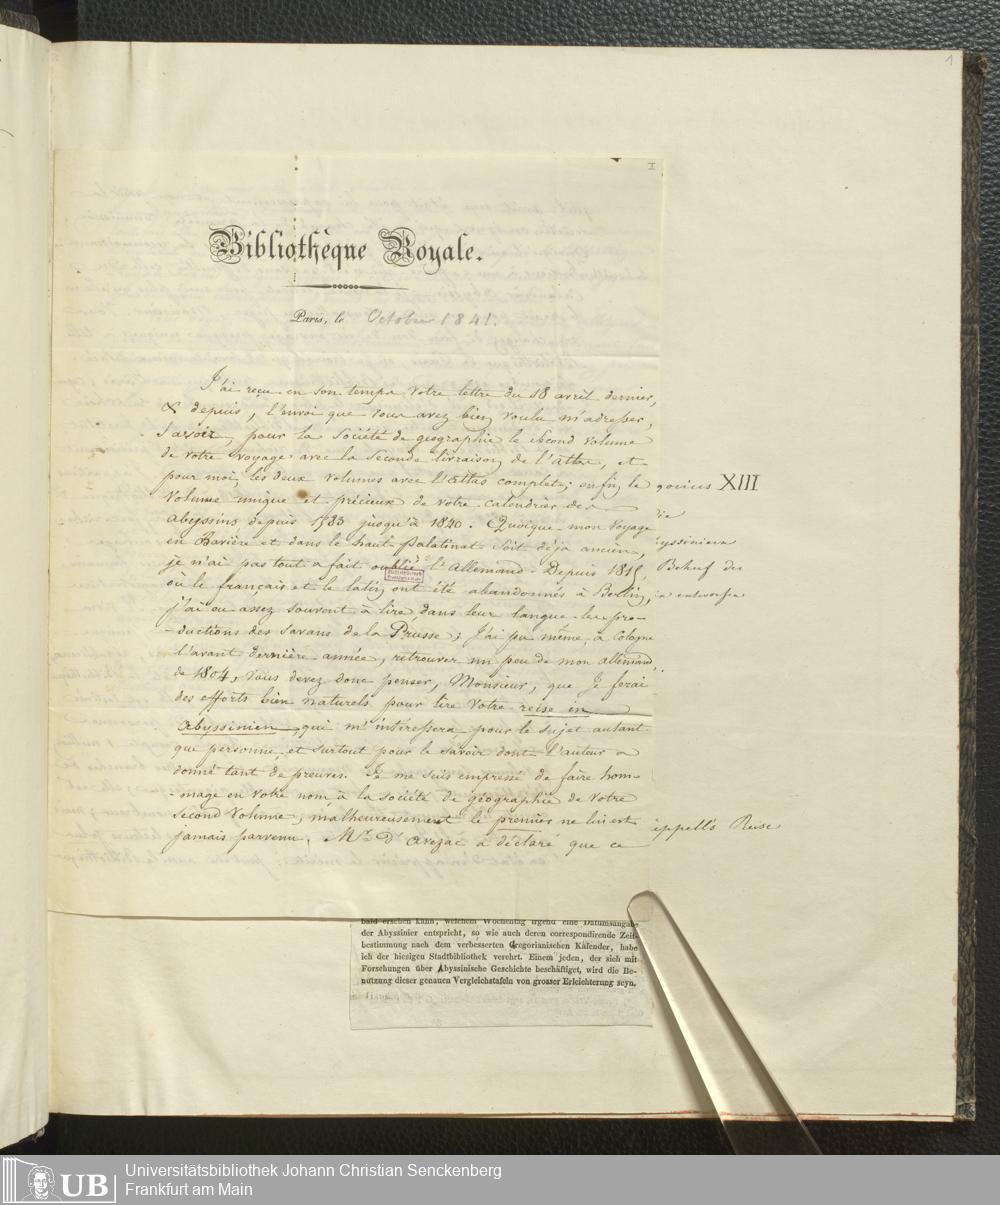 1
I
Bibliothèque Royale.
Paris, le October 1841.
J'ai reçu en son temps votre lettre du 18 avril dernier,
& depuis, l'envoi que vous avez bien voulu m'adresser,
Savoir, pour la Société de géographie le second volume
de votre voyage avec la seconde livraison de l'atlas, et
pour moi, les deux volumes avec l'atlas complet; enfin, le
volume unique et précieux de votre calendrier des
abyssins depuis 1783 jusqu'à 1840. Quoique mon voyage
en Bavière et dans le haut Palatinat soit déja ancien,
je n'ai pas tout a fait oublié l'Allemand. Depuis 1815,
où le français et le latin ont été abandonnés à Berlin,
j'ai eu assez souvent à lire dans leur langue les pro-
-ductions des savans de la Prusse; j'ai pu même, à Cologne
l'avant dernière année, retrouver un peu de mon allemand
de 1804, vous devez donc penser, Monsieur, que je ferai
des efforts bien naturels pour lire votre reise in
Abyssinien, qui m'intéressera pour le sujet autant
que personne, et surtout pour le savoir dont l'auteur a
donné tant de preuves. Je me suis empressé de faire hom-
-mage en votre nom à la société de géographie de votre
second volume; malheureusement le premier ne lui est
jamais parvenu. Mr. D'avezac a déclaré que ce
XIII
yssiniern
Behuf der
entworfen
üppell's Reise
bald ersehen kann, welchem Wochentag irgend eine Datumsangabe
der Abyssinier entspricht, so wie auch deren correspondirende Zeit-
bestimmung nach dem verbesserten Gregorianischen Kalender, habe
ich der hiesigen Stadtbibliothek verehrt. Einem jeden, der sich mit
Forschungen über Abyssinische Geschichte beschäftiget, wird die Be-
nutzung dieser genauen Vergleichstafeln von grosser Erleichterung seyn.
UB
Universitätsbibliothek Johann Christian Senckenberg
Frankfurt am Main